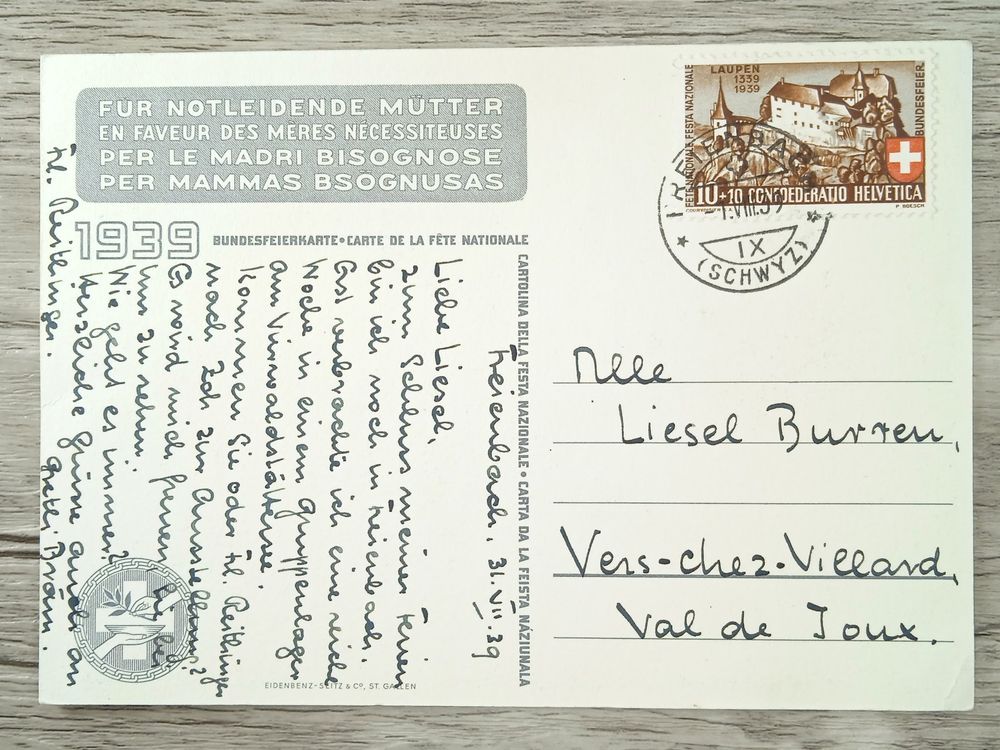 FÜR NOTLEIDENDE MÜTTER
EN FAVEUR DES MÈRES NÉCESSITEUSES
PER LE MADRI BISOGNOSE
PER MAMMAS BSÖGNUSAS
1939
BUNDESFEIERKARTE • CARTE DE LA FÊTE NATIONALE
CARTOLINA DELLA FESTA NAZIONALE • CARTA DA LA FEISTA NAZIUNALA
Freienbach, 31.VII.39
Liebe Liesel,
zum Schluss meiner Ferien
bin ich noch in Freienbach.
Erst verbrachte ich eine reiche
Woche in einem Gruppenlager
am Vierwaldstättersee.
Kommen Sie oder Frl. Reithinger
nach Zch zur Ausstellung?
Es würd mich freuen
zu sehen.
Wie geht es immer?
Herzliche Grüsse auch an
Frl. Reithinger.
Gretli
EIDENBENZ-SEITZ & Cº, ST. GALLEN
LAUPEN
1339
1939
FÊTE NATIONALE FESTA NAZIONALE
BUNDESFEIER
10+10 CONFOEDERATIO HELVETICA
COURVOISIER
P. BOESCH
FREIENBACH
-1.VIII.39
IX
(SCHWYZ)
Mlle
Liesel Burren,
Vers-chez-Villard,
Val de Joux.